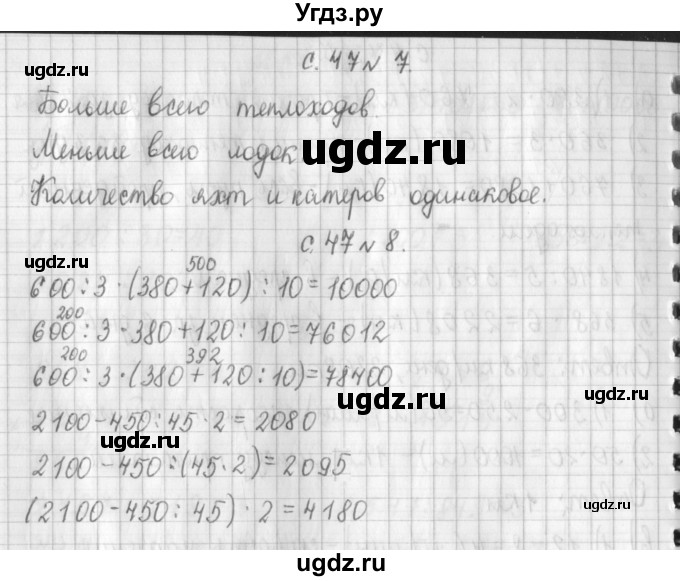 Угдз.ру
с. 47 № 7.
ugdz.ru
Больше всего теплоходов.
Меньше всего лодок
ugdz.ru
Количество яхт и катеров одинаковое.
с. 47 № 8.
ugdz.ru
500
600 : 3 · (380 + 120) : 10 = 10000
200
600 : 3 · 380 + 120 : 10 = 76012
200 392
600 : 3 · (380 + 120 : 10) = 78400
ugdz.ru
2100 - 450 : 45 · 2 = 2080
ugdz.ru
2100 - 450 : (45 · 2) = 2095
(2100 - 450 : 45) · 2 = 4180
ugdz.ru